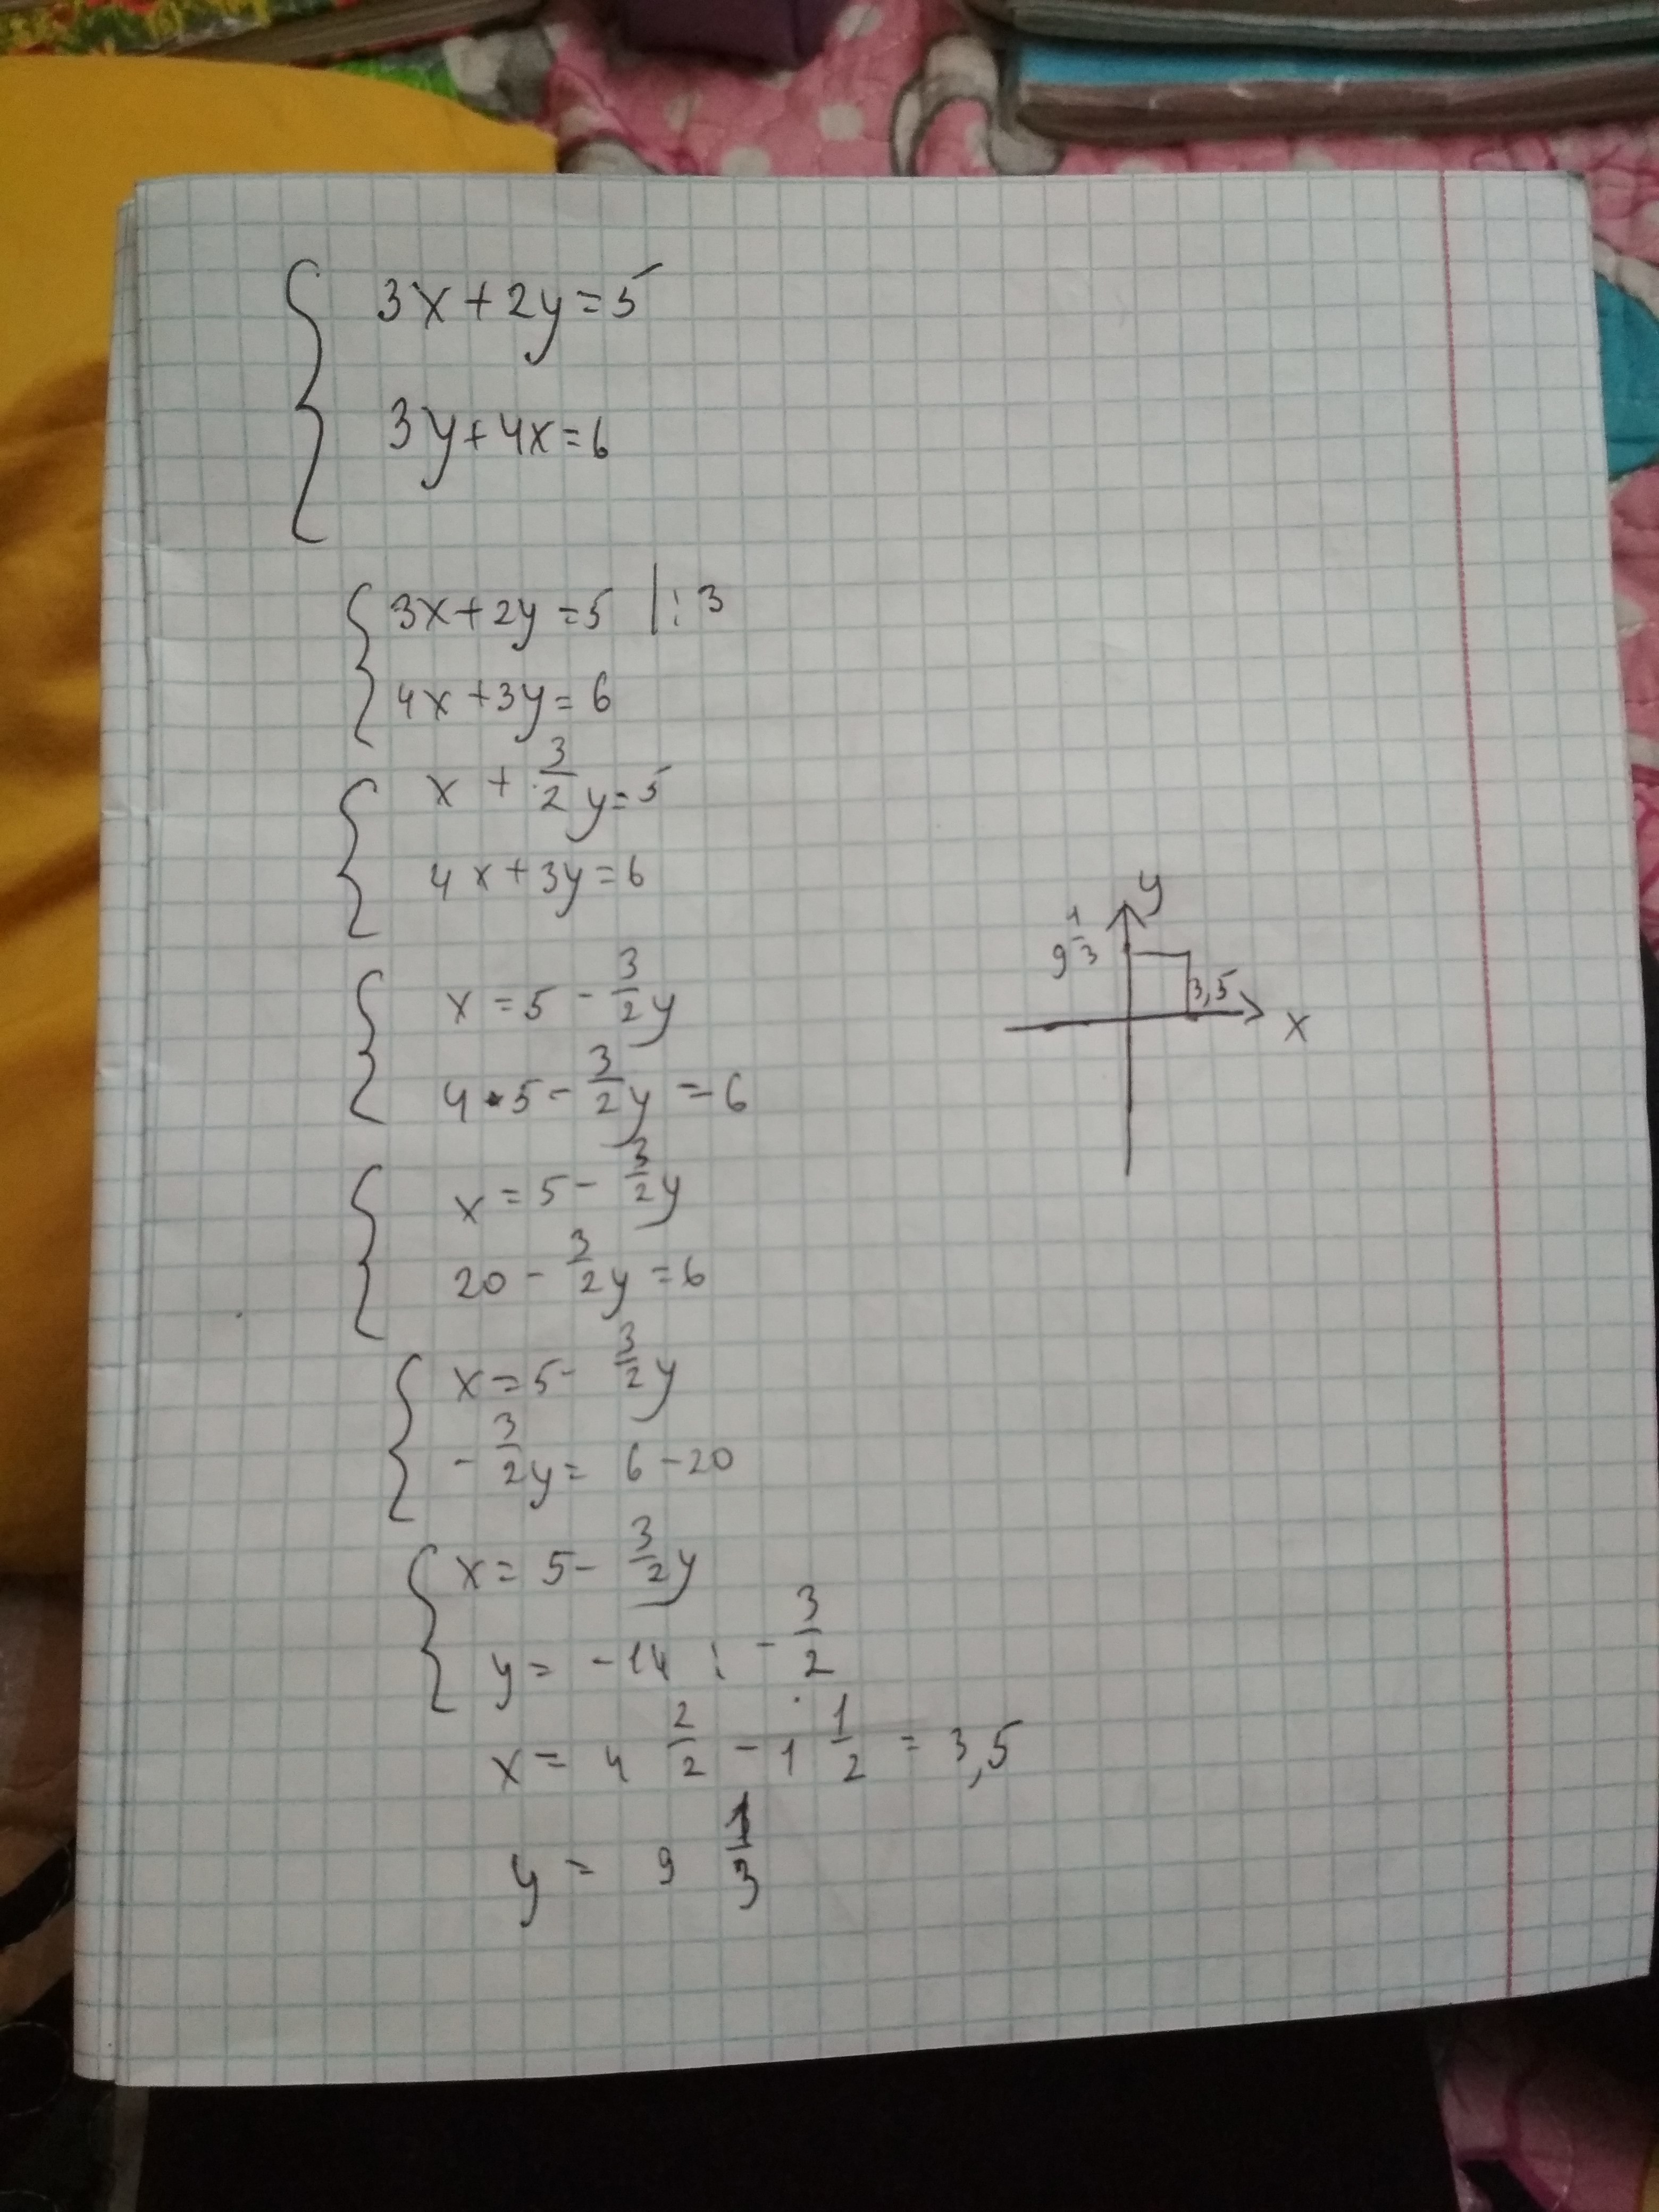 3x+2y=5
3y+4x=6
3x+2y=5 |:3
4x+3y=6
x + 3/2 y=5
4x+3y=6
x=5-3/2 y
4•5-3/2 y=6
x=5-3/2 y
20-3/2 y=6
x=5-3/2 y
-3/2 y=6-20
x=5-3/2 y
y=-14:-3/2
x=4 2/2 - 1 1/2 = 3,5
y=9 1/3
y
9 1/3
3,5
x